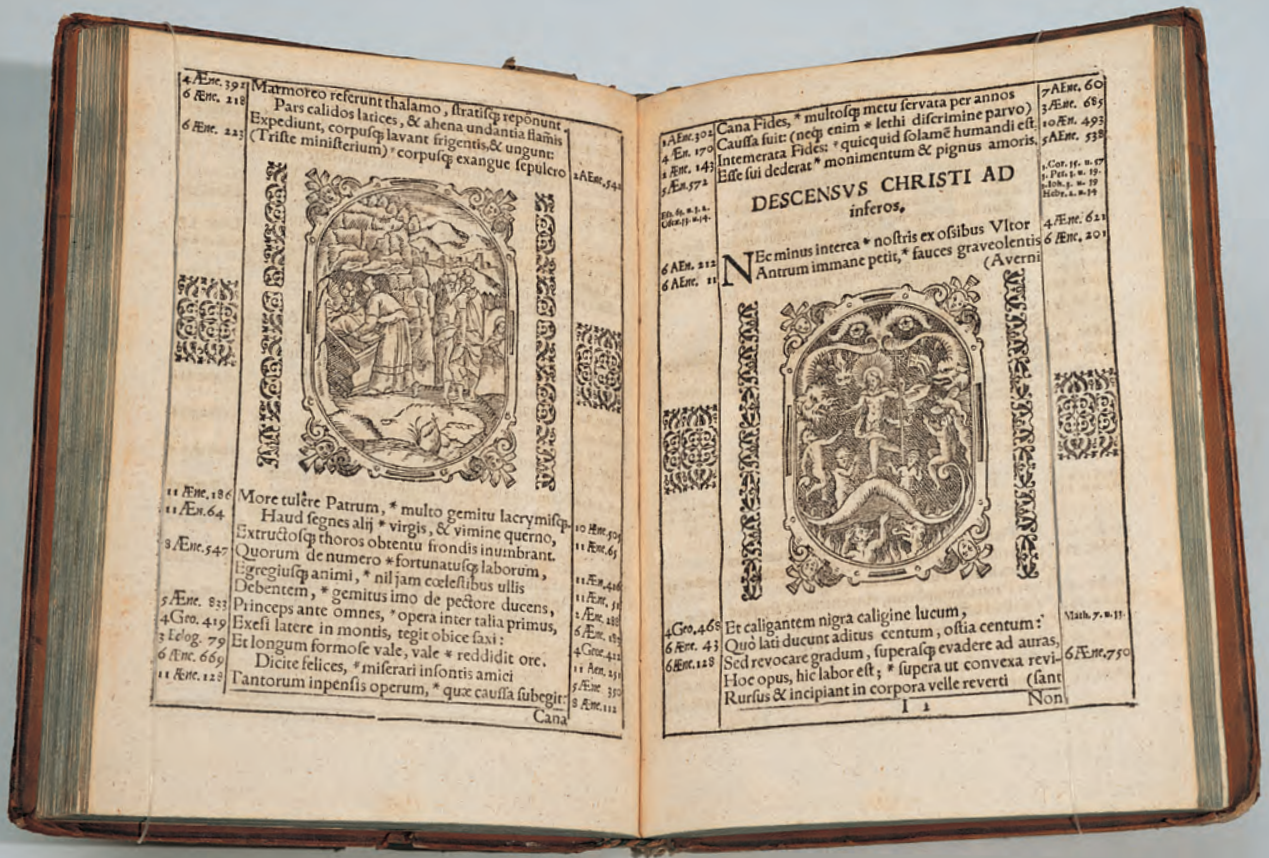 4 Æne. 391
6 Æne. 218
6 Æne. 223
Marmoreo referunt thalamo, stratisq; reponunt.
Pars calidos latices, & ahena undantia flāmis
Expediunt, corpusq; lavant frigentis, & ungunt:
(Triste ministerium) * corpusq; exangue sepulcro
2 AEne, 542
11 Æne. 186
11 Æn. 64
8 Æne. 547
5 Æne. 833
4 Geo. 419
3 Eclog. 79
6 Æne. 669
11 Æne. 128
More tulêre Patrum, * multo gemitu lacrymisq;
Haud segnes alij * virgis, & vimine querno,
Extructosq; thoros obtentu frondis inumbrant.
Quorum de numero * fortunatusq; laborum,
Egregiusq; animi, * nil jam cœlestibus ullis
Debentem, * gemitus imo de pectore ducens,
Princeps ante omnes, * opera inter talia primus,
Exesi latere in montis, tegit obice saxi:
Et longum formose vale, vale * reddidit ore.
Dicite felices, * miserari insontis amici
Tantorum inpensis operum, * quæ caussa subegit:
Cana
10 Æne. 505
11 Æne. 65
11 Æn. 416
11 Æne. 51
2 Æne. 288
4 Geor. 422
11 Aen. 251
5 Æne 350
8 Æne. 112
1 AEne. 302
4 Æn. 170
2 Æne. 143
5 Æn. 572
6 AEn. 212
6 AEne. 11
Cana Fides, * multosq; metu servata per annos
Caussa fuit: (neq; enim * lethi discrimine parvo)
Intemerata Fides: * quicquid solamē humandi est,
Esse sui dederat * monimentum & pignus amoris.
DESCENSVS CHRISTI AD
inferos.
NEc minus interea * nostris ex ossibus Vltor
Antrum immane petit, * fauces graveolentis
(Averni
7 AEne. 60
3 Æne. 685
10 Æn. 493
5 AEne. 538
1. Cor. 15. u. 57
1. Pet. 3. u. 19.
Hebr. 2. u. 14
4 Æne. 621
6 Æne. 201
4 Geo. 468
6 Æne. 43
6 Æne. 128
Et caligantem nigra caligine lucum,
Quò lati ducunt aditus centum, ostia centum:
Sed revocare gradum, superasq; evadere ad auras,
Hoc opus, hic labor est; * supera ut convexa revi-
Rursus & incipiant in corpora velle reverti (sant
I 2
Non
Math. 7. u. 13.
6 Æne. 750